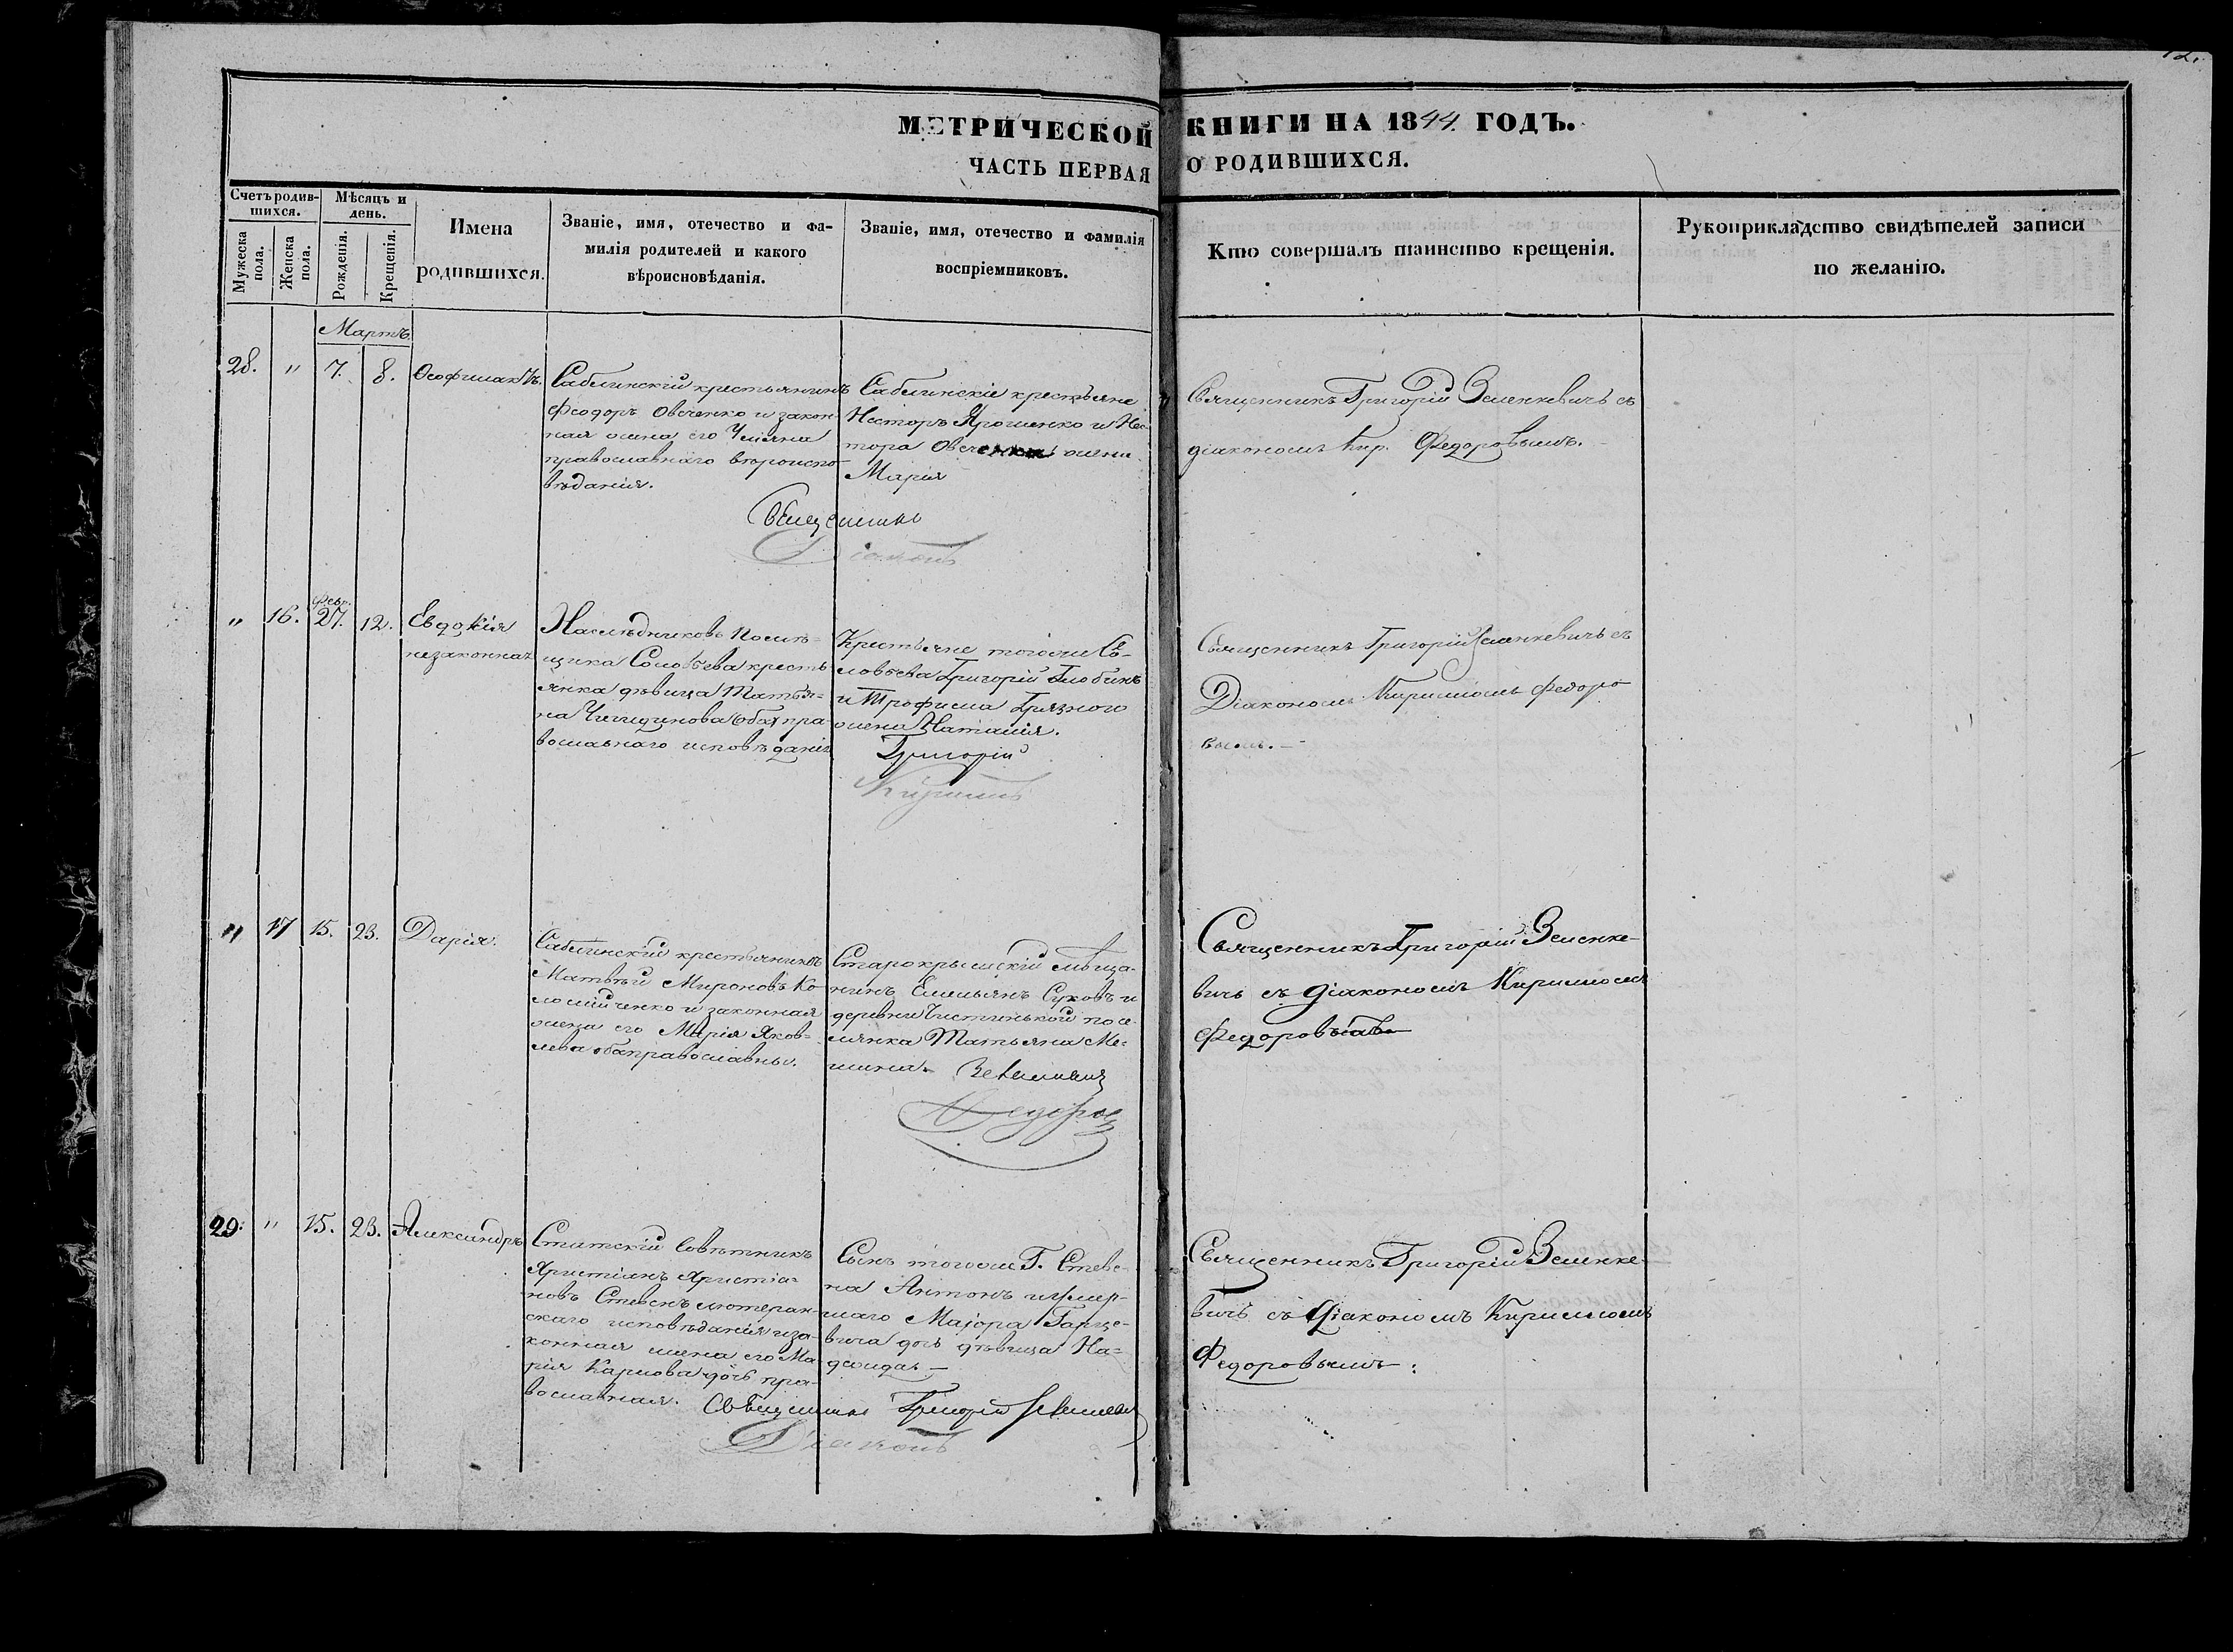 12.
МЕТРИЧЕСКОЙ КНИГИ НА 1844. ГОДЪ.
ЧАСТЬ ПЕРВАЯ О РОДИВШИХСЯ.
Счетъ родив-
шихся.
Мужеска
пола.
Женска
пола.
Мѣсяцъ и
день.
Рожденія.
Крещенія.
Имена
родившихся.
Званіе, имя, отечество и фа-
милія родителей и какого
вѣроисповѣданія.
Званіе, имя, отечество и фамилія
воспріемниковъ.
Кто совершалъ таинство крещенія.
Рукоприкладство свидѣтелей записи
по желанію.
Мартъ
28. " 7. 8. Ѳеофилактъ.
Саблинскій крестьянинъ
Феодоръ Овченко и закон-
ная жена его
православнаго вѣроиспо-
вѣданія.
Саблинскіе крестьяне
Несторъ Ярошенко и Нес-
тора Овченка жена
Марія
Священникъ Григорій Зеленкевичъ съ
діакономъ Кир. Федоровымъ.
Священникъ
Діаконъ
" 16. Февр. 27. 12. Евдокія
незаконная
Наслѣдниковъ помѣ=
щика Соловьева кресть
янка дѣвица Татья=
на оба пра-
вославнаго исповѣданія
Крестьяне тогоже Со-
ловьева Григорій Глобинъ
и Трофима Грязного
жена Наталія.
Священникъ Григорій Зеленкевичъ съ
Діакономъ Кирилломъ Федоро
вымъ.
Григорій
Кириллъ
" 17 15. 23. Дарія.
Саблинскій крестьянинъ
Матвѣй Мироновъ Ко-
ломійченко и законная
жена его Марія Яков=
лева оба православны.
Старокрымскій мѣща-
нинъ Емельянъ Суховъ и
деревни Чистинькой посе-
лянка Татьяна Ме=
Священникъ Григорій Зеленке-
вичь съ діакономъ Кирилломъ
Федоровымъ
29. " 15. 23. Александръ
Статскій Совѣтникъ
Христіанъ Христіа=
новъ Стевенъ лютеран-
скаго исповѣданія и за-
конная жена его Ма-
рія Карлова дочь пра-
вославная.
Сынъ тогоже Г. Стеве-
на Антонъ и умер-
шаго Маіора Гарце-
вича дочь дѣвица На=
дежда. —
Священникъ Григорій Зеленке-
вичъ съ Діакономъ Кирилломъ
Федоровымъ:
Священникъ Григорій Зеленкевич
Діаконъ